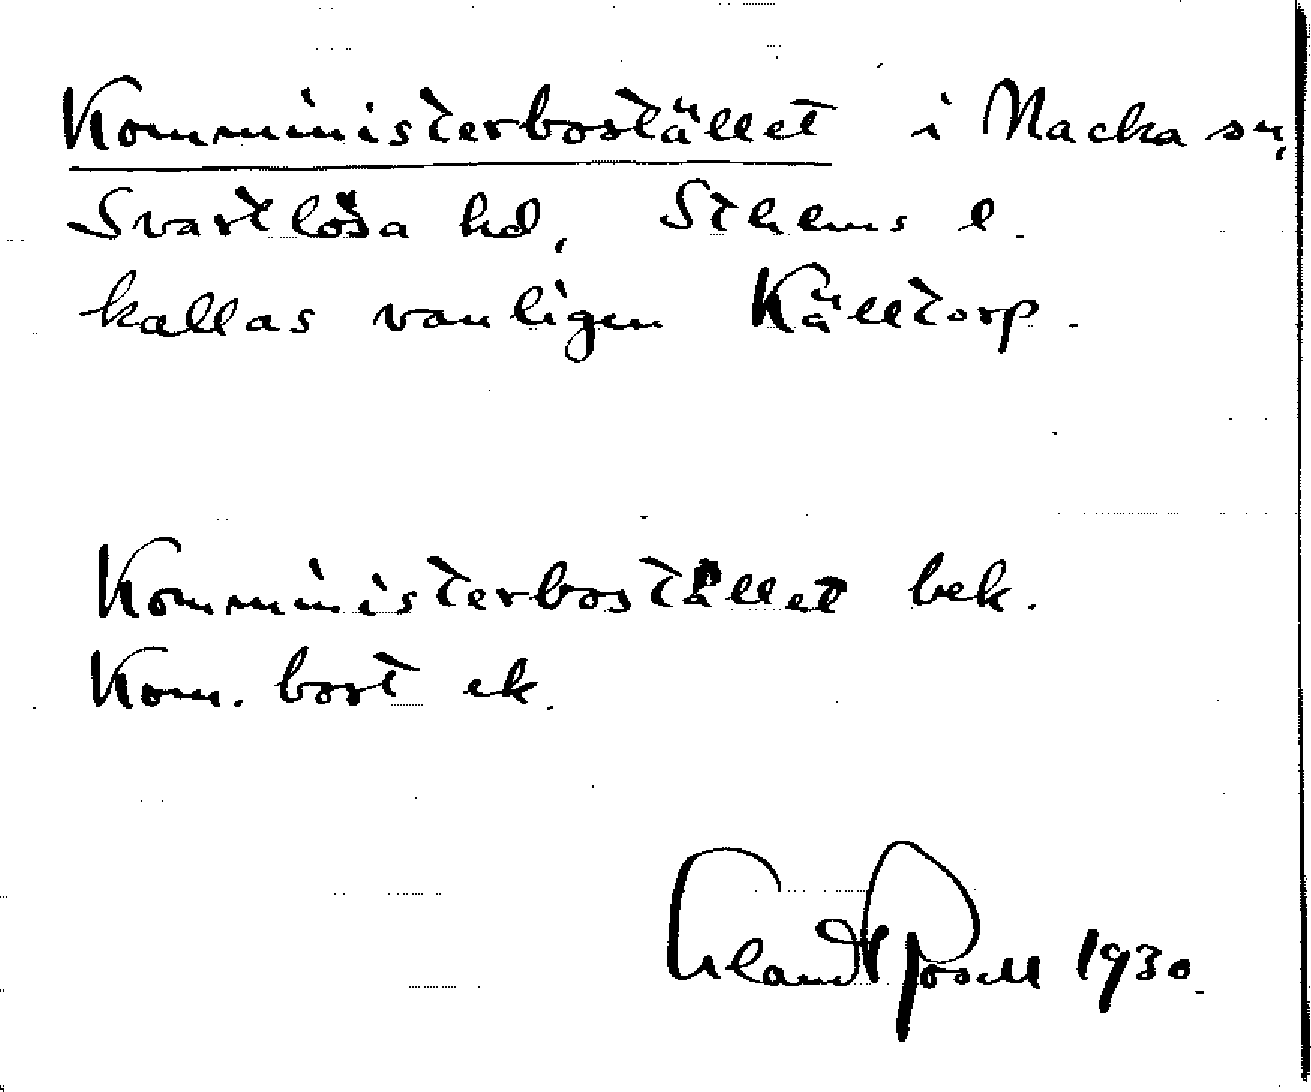 Kommministerbostället i Nacka sn,
Svartlösa hd, Sthlms l.
kallas vanligen Källtorp.
Kommministerbostället bek.
Kom. bost ek.
Erland Rosell 1930.